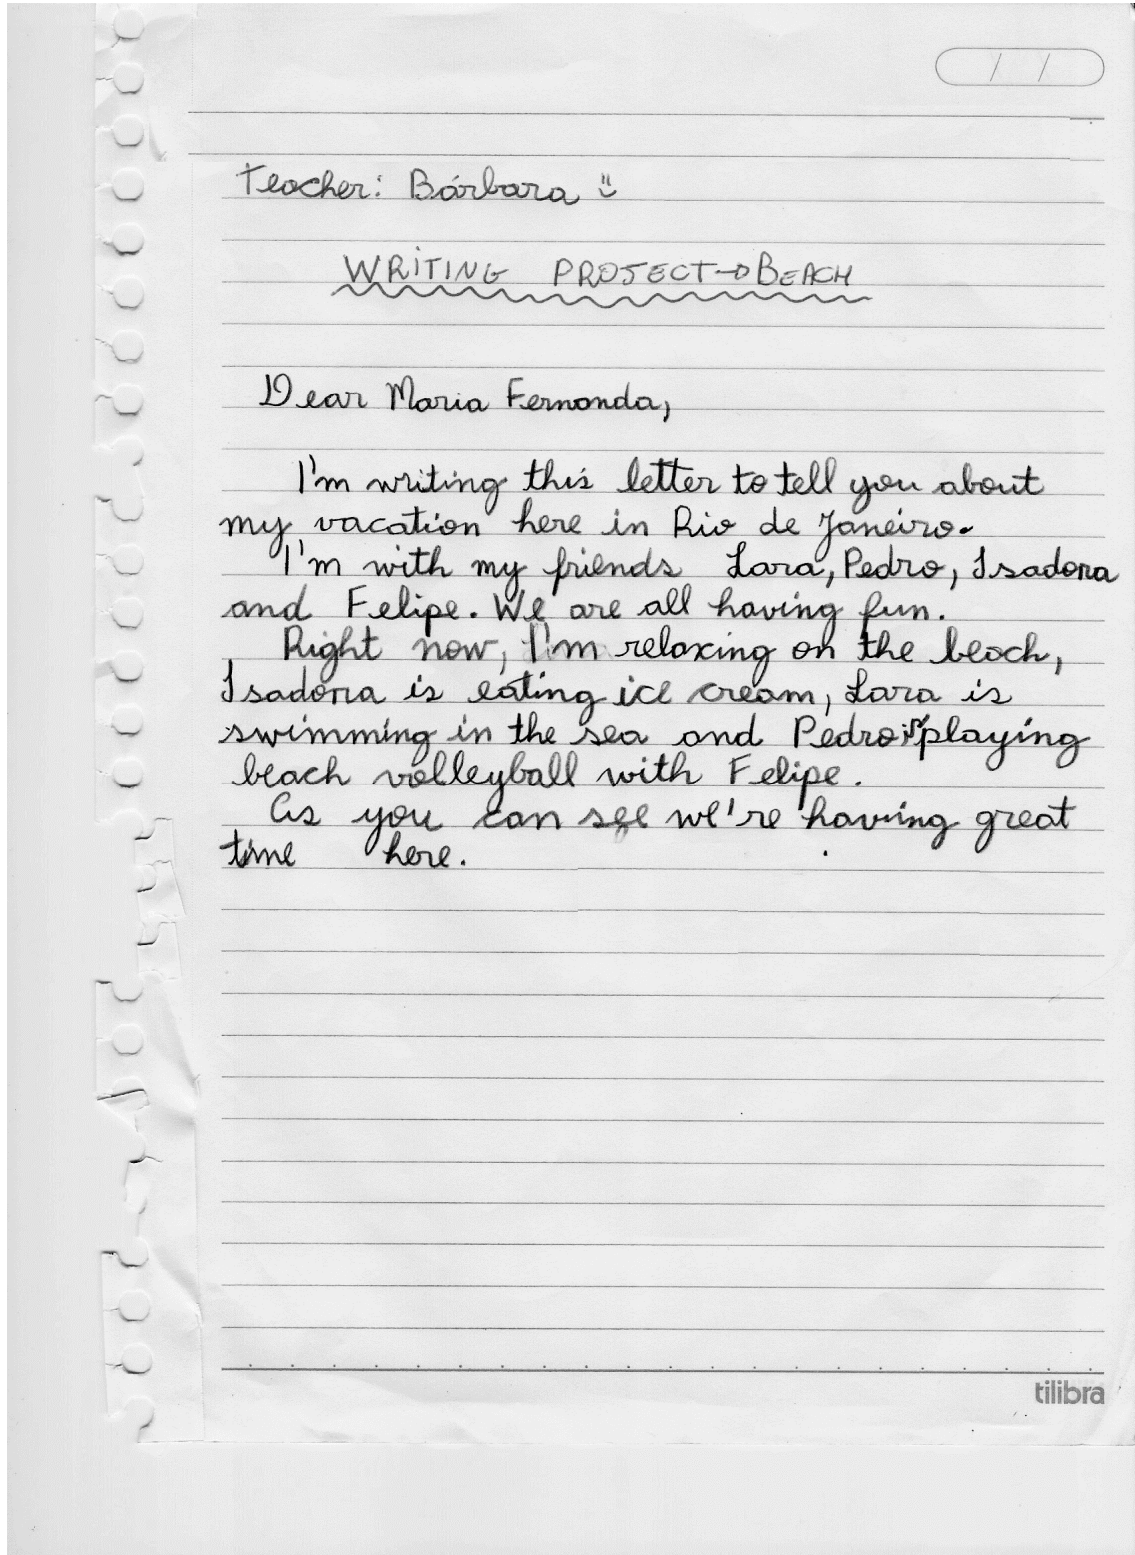 Teacher: Bárbara
WRITING PROJECT→BEACH
Dear Maria Fernanda,
I'm writing this letter to tell you about
my vacation here in Rio de Janeiro.
I'm with my friends Lara, Pedro, Isadora
and Felipe. We are all having fun.
Right now, I'm relaxing on the beach,
Isadora is eating ice cream, Lara is
swimming in the sea and Pedro is playing
beach volleyball with Felipe.
As you can see we're having great
time here.
tilibra